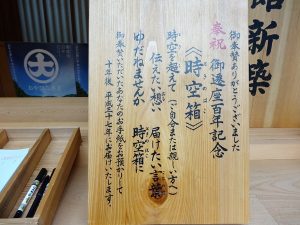 新築
御奉賛ありがとうございました
奉祝 御遷座百年記念
《時空箱》
時空を超えて(ご自分または親しい方へ)
伝えたい想い 届けたい言葉
ゆだねませんか 時空箱に
御奉賛いただいたあなたのお手紙をお預かりして
十年後、平成三十七年にお届けいたします。
大